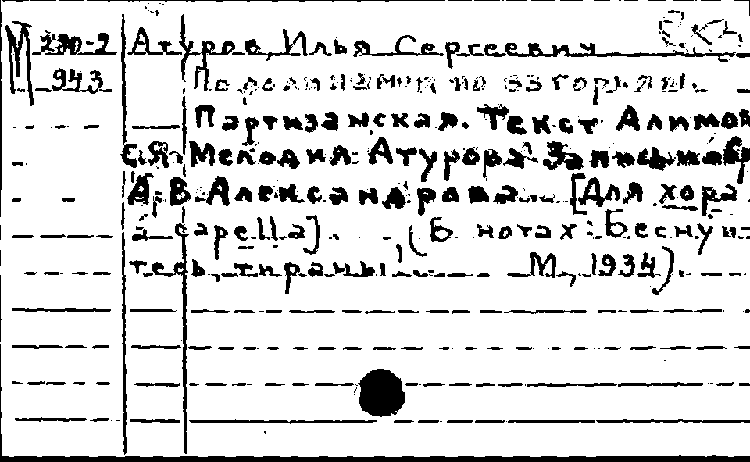 М 230-2 Атуров, Илья Сергеевич
943 По долинам и по взгорьям.
Партизанская. Текст Алимов
С.Я. Мелодия Атурова Запись и обр
А.В. Александрова [Для хора
a capella]. (В нотах: Беснуй-
тесь, тираны! М., 1934).